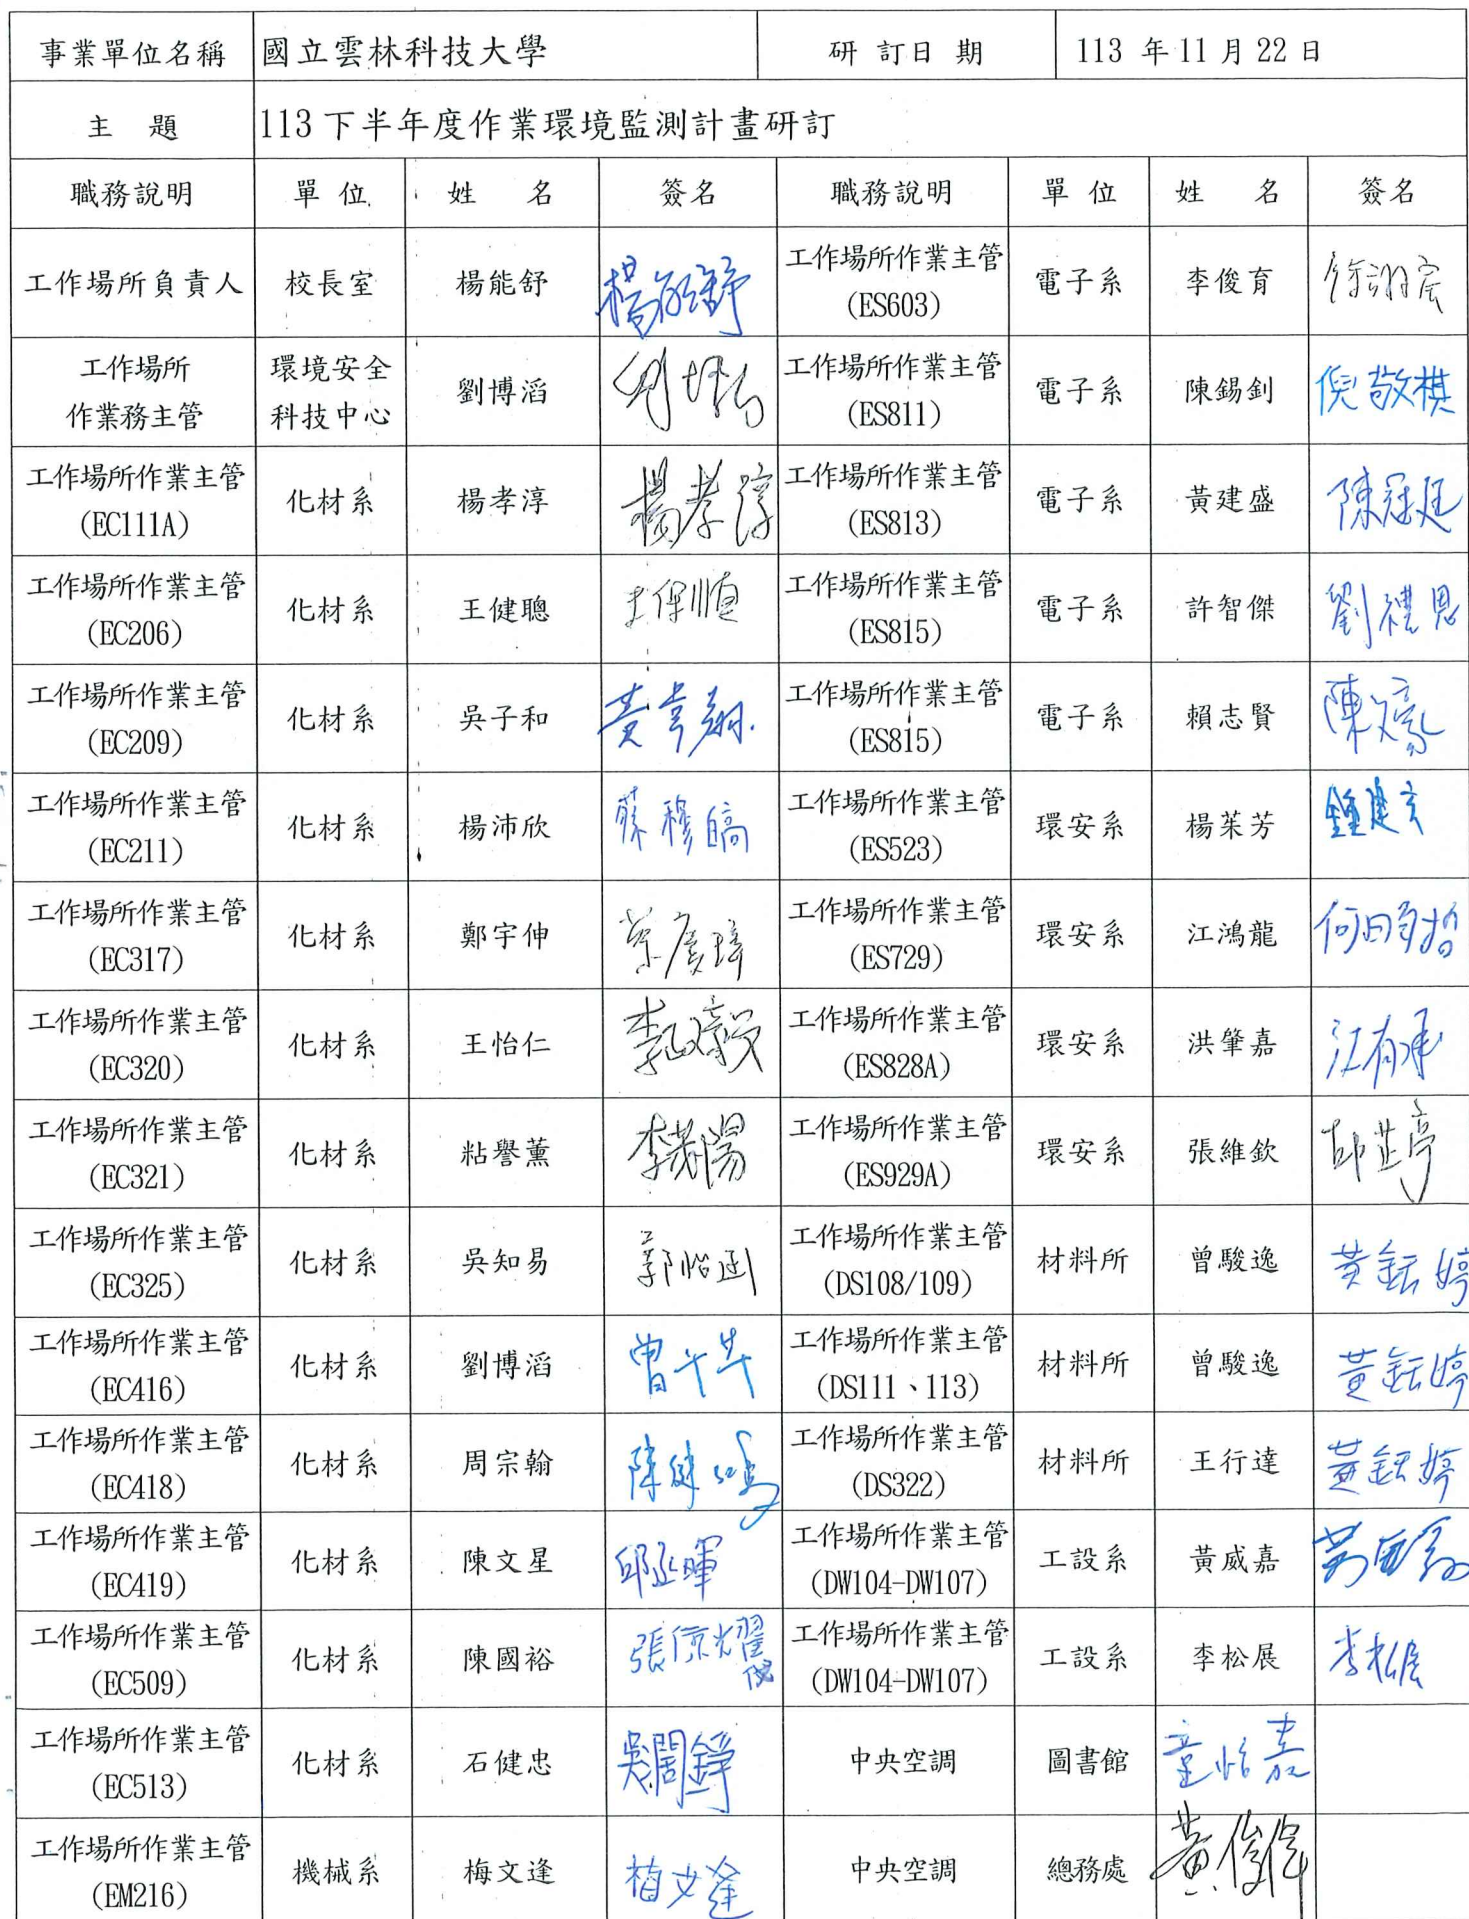 事業單位名稱 國立雲林科技大學 研訂日期 113 年 11 月 22 日
主 題 113 下半年度作業環境監測計畫研訂
職務說明 單位 姓 名 簽名 職務說明 單位 姓 名 簽名
工作場所負責人 校長室 楊能舒 楊能舒 工作場所作業主管 (ES603) 電子系 李俊育
工作場所 作業務主管 環境安全 科技中心 劉博滔 工作場所作業主管 (ES811) 電子系 陳錫釗 倪敬棋
工作場所作業主管 (EC111A) 化材系 楊孝淳 楊孝淳 工作場所作業主管 (ES813) 電子系 黃建盛 陳冠廷
工作場所作業主管 (EC206) 化材系 王健聰 工作場所作業主管 (ES815) 電子系 許智傑 劉禮恩
工作場所作業主管 (EC209) 化材系 吳子和 工作場所作業主管 (ES815) 電子系 賴志賢
工作場所作業主管 (EC211) 化材系 楊沛欣 工作場所作業主管 (ES523) 環安系 楊茱芳
工作場所作業主管 (EC317) 化材系 鄭宇伸 工作場所作業主管 (ES729) 環安系 江鴻龍
工作場所作業主管 (EC320) 化材系 王怡仁 工作場所作業主管 (ES828A) 環安系 洪肇嘉
工作場所作業主管 (EC321) 化材系 粘譽薰 工作場所作業主管 (ES929A) 環安系 張維欽 邱芷亭
工作場所作業主管 (EC325) 化材系 吳知易 工作場所作業主管 (DS108/109) 材料所 曾駿逸 黃鈺婷
工作場所作業主管 (EC416) 化材系 劉博滔 工作場所作業主管 (DS111、113) 材料所 曾駿逸 黃鈺婷
工作場所作業主管 (EC418) 化材系 周宗翰 工作場所作業主管 (DS322) 材料所 王行達 黃鈺婷
工作場所作業主管 (EC419) 化材系 陳文星 邱丞暉 工作場所作業主管 (DW104-DW107) 工設系 黃威嘉
工作場所作業主管 (EC509) 化材系 陳國裕 工作場所作業主管 (DW104-DW107) 工設系 李松展 李松展
工作場所作業主管 (EC513) 化材系 石健忠 中央空調 圖書館 童怡嘉
工作場所作業主管 (EM216) 機械系 梅文逢 梅文逢 中央空調 總務處 黃俊偉